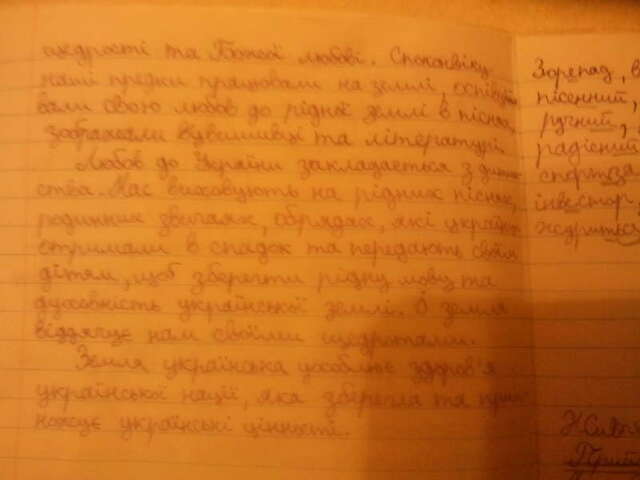 щедрості та Божої любові. Споконвіку
наші предки працювали на землі, оспівува
вали свою любов до рідної землі в піснях,
зображали у вишивці та літературі.
Любов до України закладається з дитин
ства. Нас виховують на рідних піснях,
родинних звичаях, обрядах, які українці
отримали в спадок та передають своїм
дітям, щоб зберегти рідну мову та
духовність української землі. О земля
віддячує нам своїми щедротами.
Земля українська уособлює здоров'я
української нації, яка зберегла та при
ножує українські цінності.
Зорепад, в
пісенний,
ручний,
радісний
спорт
інвестор,
жсуриться